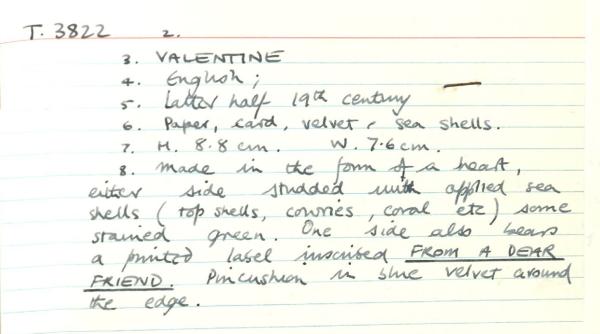 T. 3822 2.
3. VALENTINE
4. English;
5. Latter half 19th century
6. Paper, card, velvet, sea shells.
7. H. 8.8 cm. W. 7.6 cm.
8. Made in the form of a heart,
either side studded with applied sea
shells (top shells, cowries, coral etc) some
stained green. One side also bears
a printed label inscribed FROM A DEAR
FRIEND. Pincushion in blue velvet around
the edge.